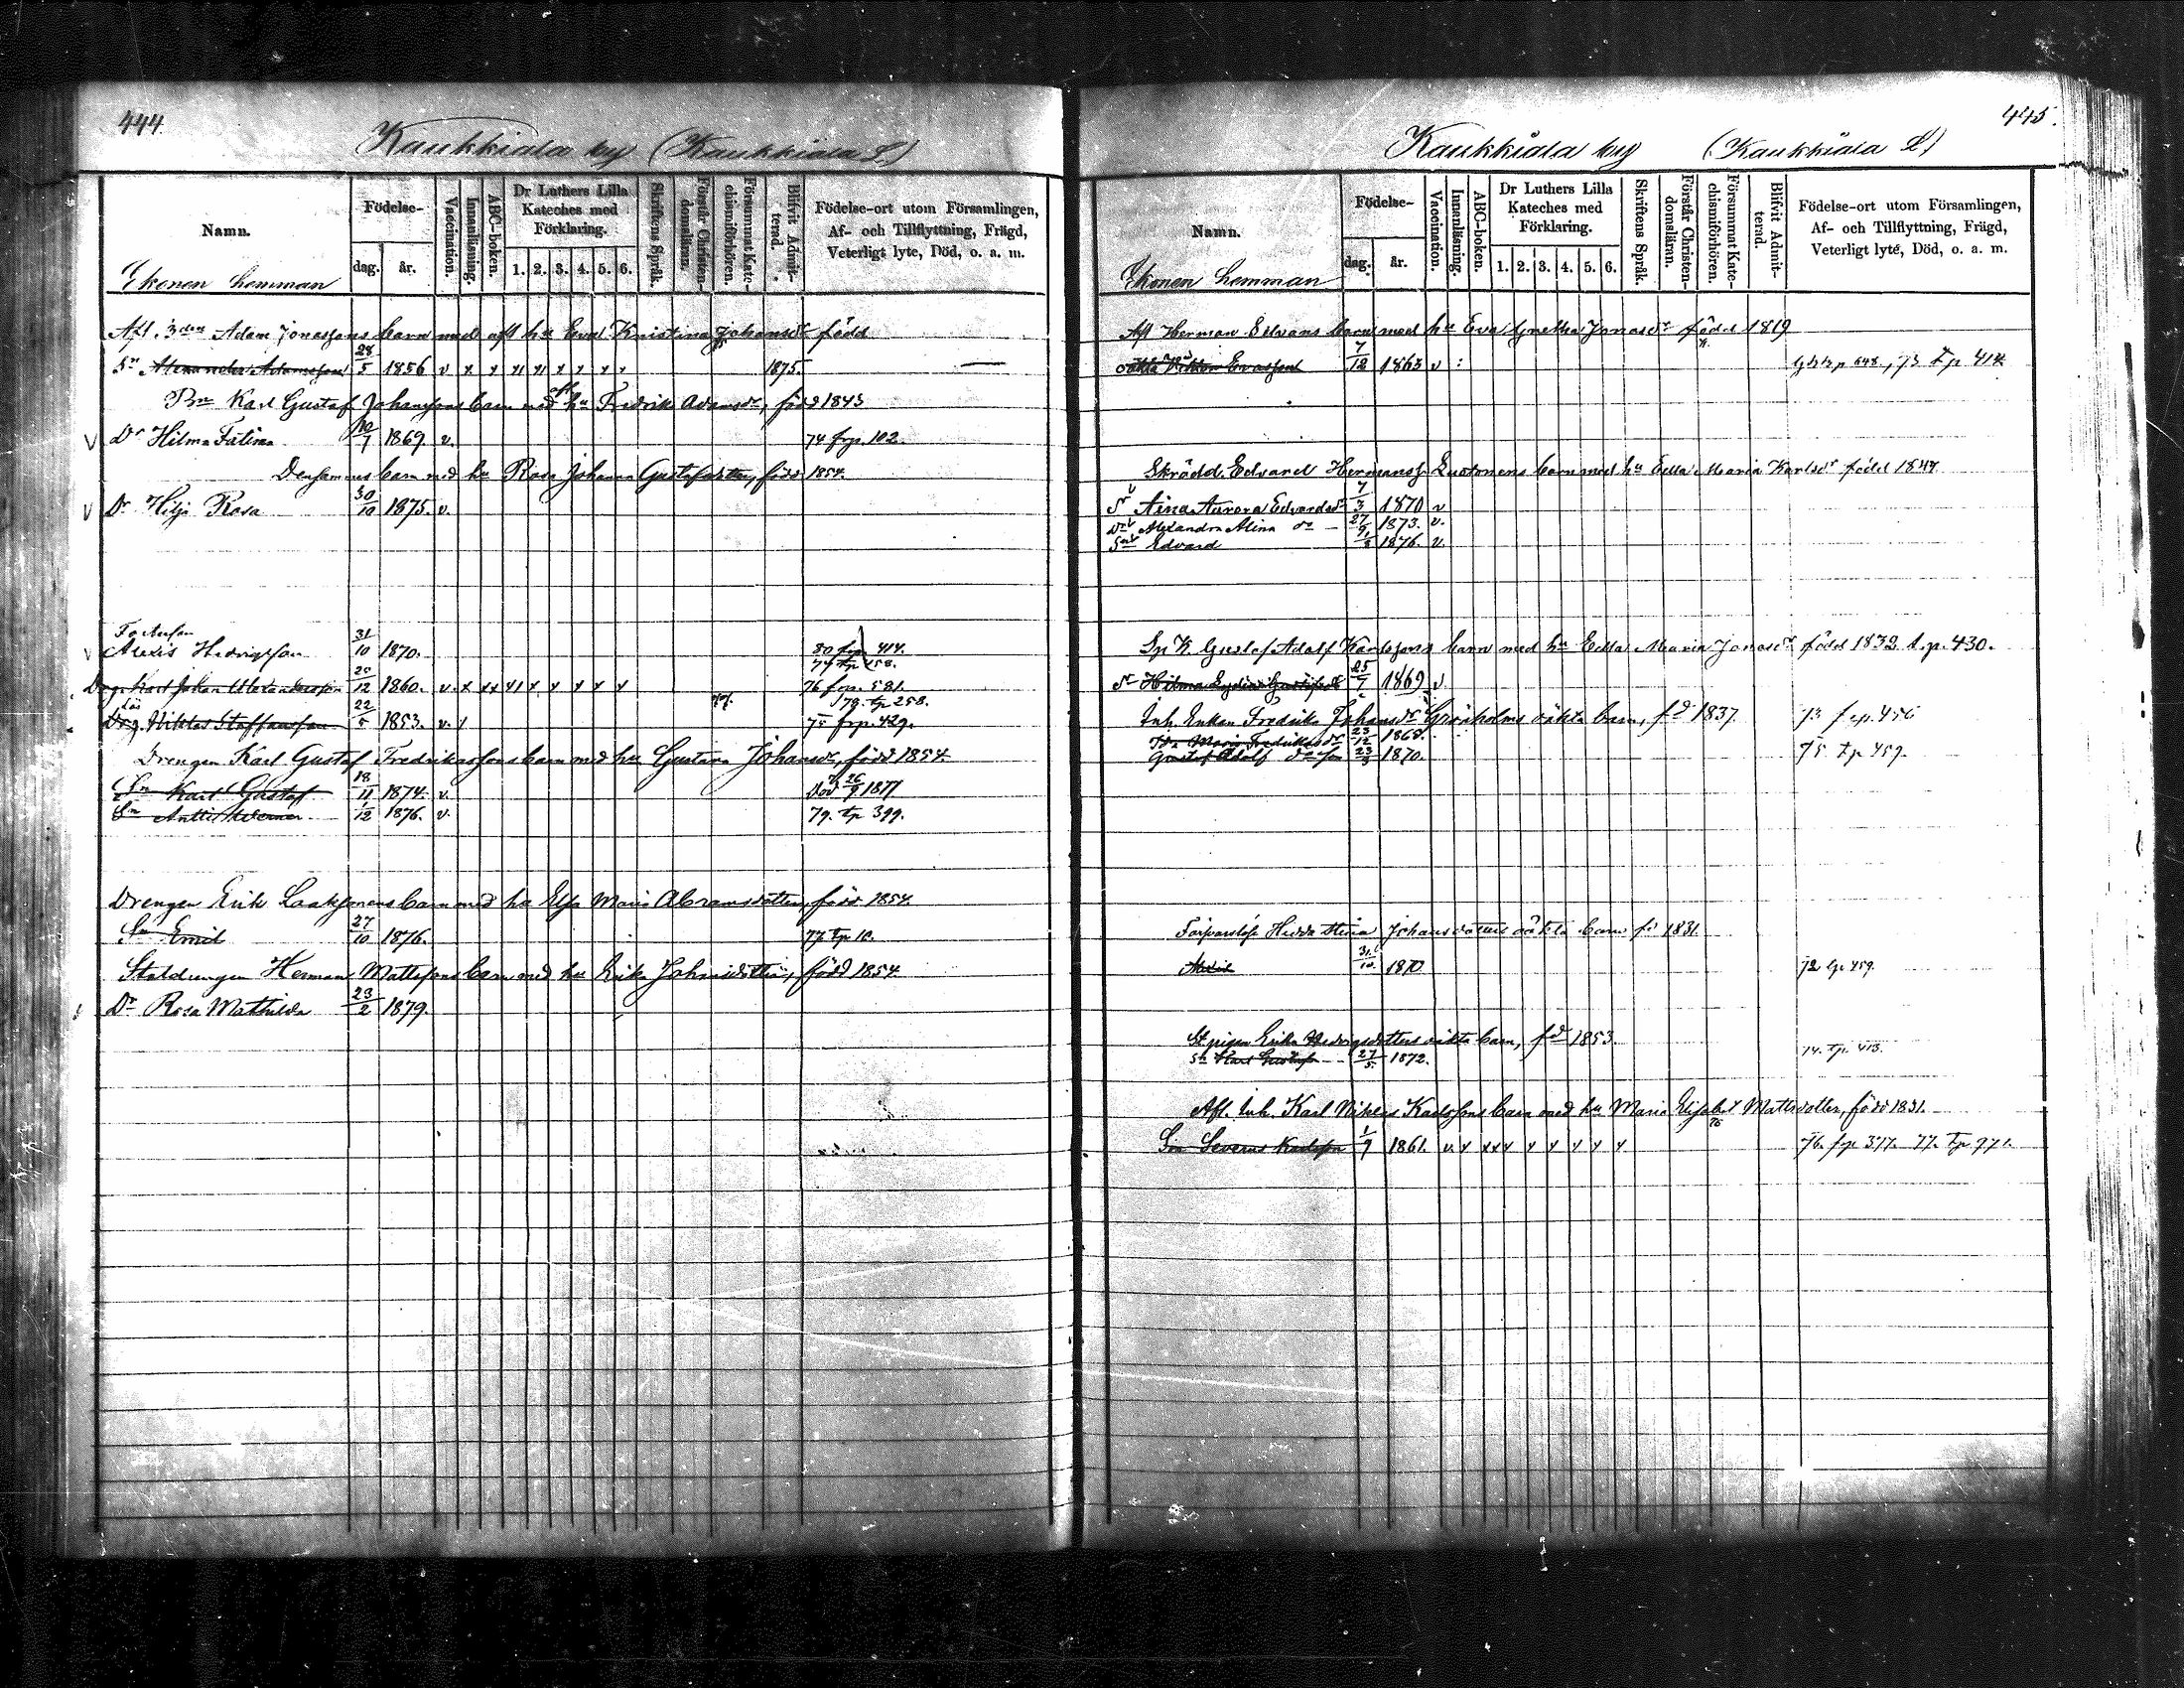 444.
Kaukkiala by (Kaukkiala L.)
Namn.
Födelse-
dag.
år.
Vaccination.
Innanläsning.
ABC-boken.
Dr Luthers Lilla
Kateches med
Förklaring.
1. 2. 3. 4. 5. 6.
Skriftens Språk.
Förstår Christen-
domsläran.
Försummat Kate-
chismiförhören.
Blifvit Admit-
terad.
Födelse-ort utom Församlingen,
Af- och Tillflyttning, Frägd,
Veterligt lyte, Död, o. a. m.
Ekonen hemman
Afl. Adam Jonassons barn med afl hu Eva Kristina Johansdr född
Sn Alexander Adamsson 28/5 1856 v x x x x x x 1875. —
Bn Karl Gustaf Johanssons barn med afl hu Fredrika Adamsdr, född 1843
V Dr Hilma Fatima 10/7 1869 v. 74 frp. 102.
Densammes barn med hu Rosa Johanna Gustafsdotter, född 1854.
V Dr Hilja Rosa 30/10 1875. v.
Fosterson
v Alexis Hedvigsson 31/10 1870. 80 frp 414.
74 tp 458.
Drg. Karl Johan Alexandersson 20/12 1860. v. x xx x x x x x x 76 frp. 581.
78. tp 258.
Drg. Niklas Staffansson 22/5 1853. v. 75 frp. 429.
Drengen Karl Gustaf Fredrikassons barn med hu Gustava Johansdr, född 1854.
Sn Karl Gustaf 18/11 1874. v. död 26/9 1877
Sn Antti Werner 1/12 1876. v. 79. tp 399.
Drengen Erik Laaksonens barn med hu Elsa Maria Abramsdotter, född 1854.
Sn Emil 27/10 1876. 77 tp 10.
Staldrengen Herman Mattssons barn med hu Erika Johansdotter, född 1854
Dr Rosa Mathilda 23/2 1879.
445.
Kaukkiala by (Kaukkiala L)
Namn.
Födelse-
dag.
år.
Vaccination.
Innanläsning.
ABC-boken.
Dr Luthers Lilla
Kateches med
Förklaring.
1. 2. 3. 4. 5. 6.
Skriftens Språk.
Förstår Christen-
domsläran.
Försummat Kate-
chismiförhören.
Blifvit Admit-
terad.
Födelse-ort utom Församlingen,
Af- och Tillflyttning, Frägd,
Veterligt lyte, Död, o. a. m.
Ekonen hemman
Afl Herman Edvards barn med hu Eva Gretha Jonasdr född 1819
oäkta Viktor Evasson 7/12 1863 v : p 648., 73 tp 414
Skrädd. Edvard Hermanss Luotonens barn med hu Edla Maria Karlsdr född 1847
Dr Aina Aurora Edvardsdr 7/3 1870 v
Dr Alexandra Alina dr — 27/9 1873. v.
Son Edvard 9/8 1876. v.
Sp K. Gustaf Adolf Karlssons barn med hu Edla Maria Jonasdr född 1832 tp. 430.
Dr Hilma Lydia Gustafsdr 25/7 1869 v
Inh. Enkan Fredrika Johansdr Grönholms oäkta barn, fd 1837. 73 frp. 456
Ida Maria Fredrikasdr 23/12 1868.
Gustaf Adolf 23/3 1870. 75 tp 459.
Hedda Maria Johansdotters oäkta barn fd 1831.
Alexis 31/10 1870 72 tp 459.
St. pigan Erika Hedvigsdotters oäkta barn, fd 1853.
Sn Karl Gustaf — 27/5 1872. 74. tp. 413.
Afl. Inh. Karl Niklas Karlssons barn med hu Maria Elisabet Mattsdotter, född 1831.
Son Severus Karlsson 1/9 1861. v. x xxx x x x x x 76. frp 377. 77. tp 971.